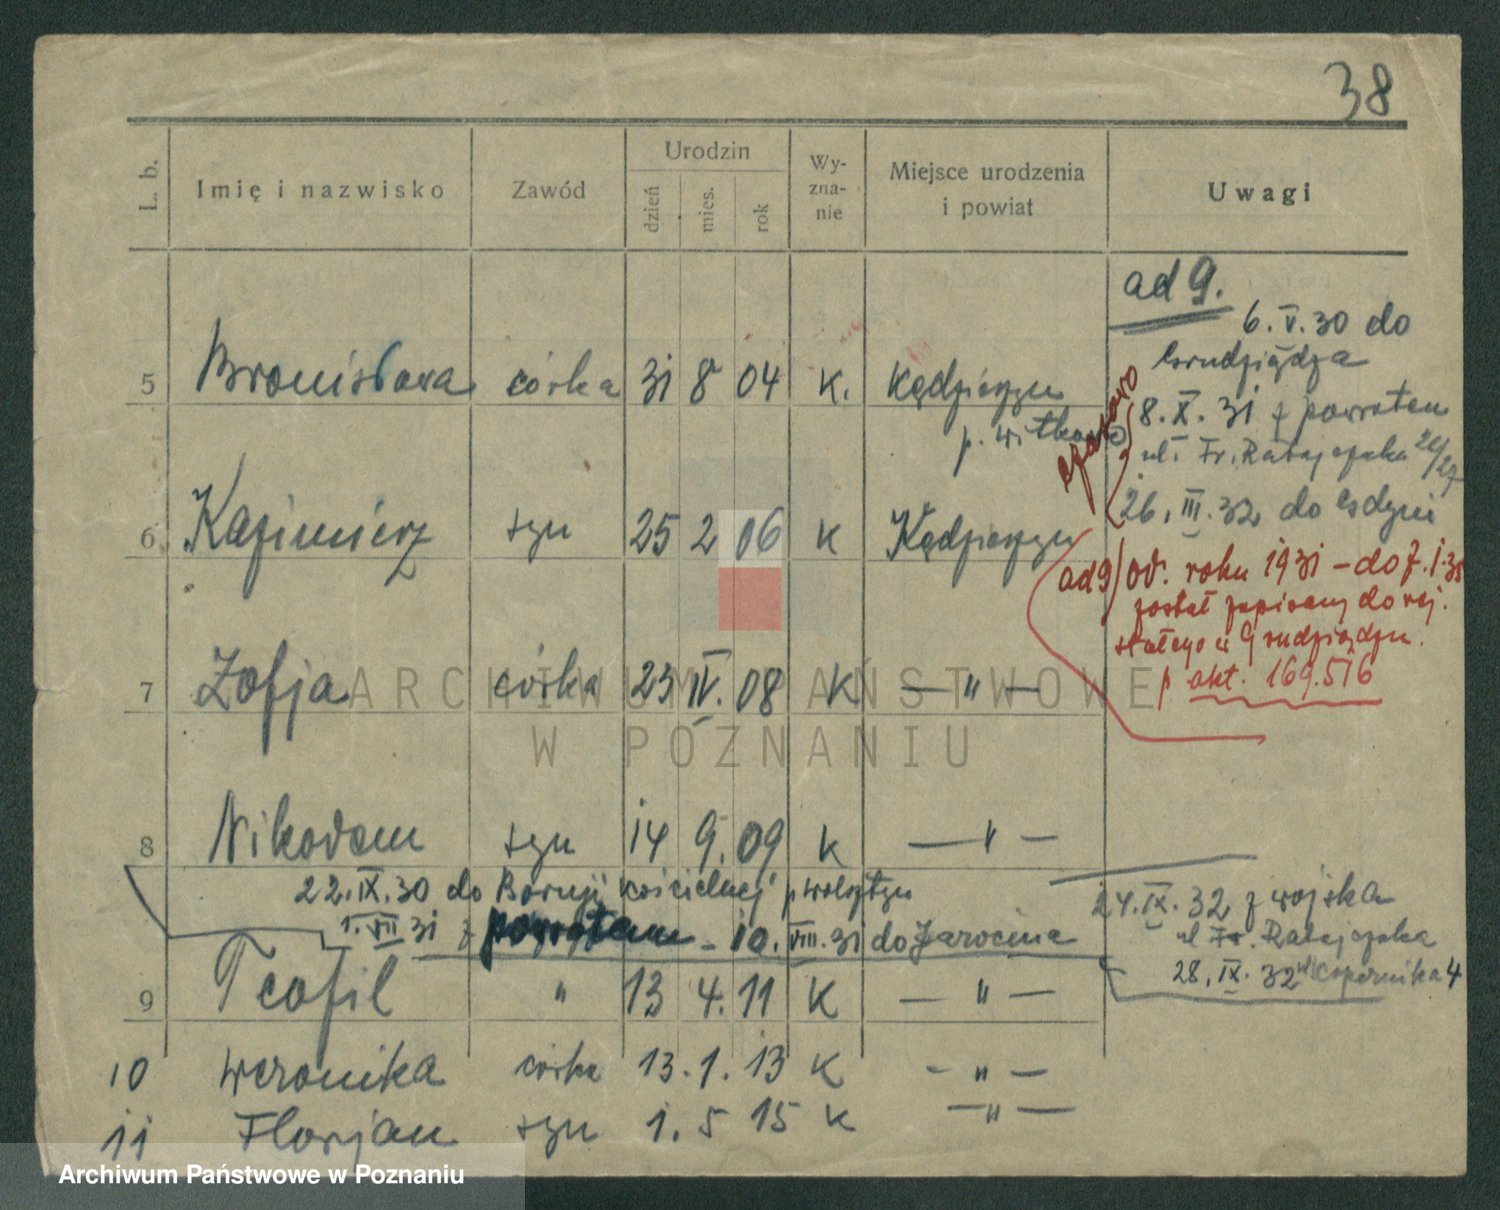 38
L. b. Imię i nazwisko Zawód Urodzin dzień mies. rok Wy-zna-nie Miejsce urodzenia i powiat Uwagi
ad 9.
6. V. 30 do
Grudziądza
5 Bronisława córka 31 8 04 k. Kędzierzyn
p. Witkowo
8. X. 31 z powrotem
ul. Fr. Ratajczaka
26. III. 32 do Gdyni
6 Kazimierz syn 25 2 06 k Kędzierzyn
ad 9/ od. roku 1931 – do
został zapisany do rej.
stałego w Grudziądzu.
akt. 169.516
7 Zofja córka 23 IV. 08 K — " —
8 Nikodem syn 14 9. 09 k — " —
22. IX. 30 do Boruji kościelnej p wolsztyn
1. VII 31 z powrotem – 10. VIII. 31 do Jarocina
24. IX. 32 z wojska
ul Fr. Ratajczaka
28. IX. 32 Kopernika 4
9 Teofil " 13 4. 11 K — " —
10 Weronika córka 13. 1. 13 K – " —
11 Florjan syn 1. 5 15 K — " —
ARCHIWUM PAŃSTWOWE
W POZNANIU
Archiwum Państwowe w Poznaniu